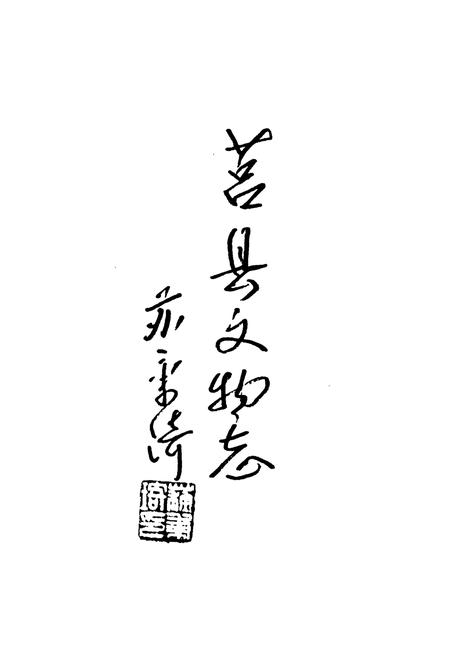 莒县文物志
苏秉琦
苏秉琦印